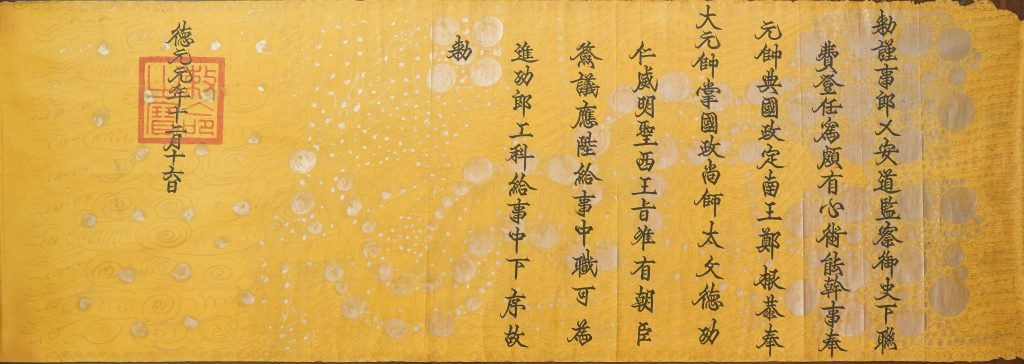 勅謹事郎乂安道監察御史下聯
費登任寫頗有心術能幹事奉
元帥典國政定南王鄭根恭奉
大元帥掌國政尚師太父德功
仁威明聖西王旨准有朝臣
簽議應陞給事中職可為
進功郎工科給事中下序故
勅
德元元年十二月十六日
敕命之寶